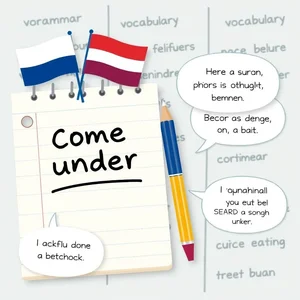 vorammar
vocabulary
vocabulary
felifuers
pace belure
Here a suron,
phors is othught,
bemnen.
Becor as denge,
on, a bait.
Come
under
cortimear
I
you eut bel
SEARD a songh
unker.
I ackflu done
a betchock.
cuice eating
treet buan